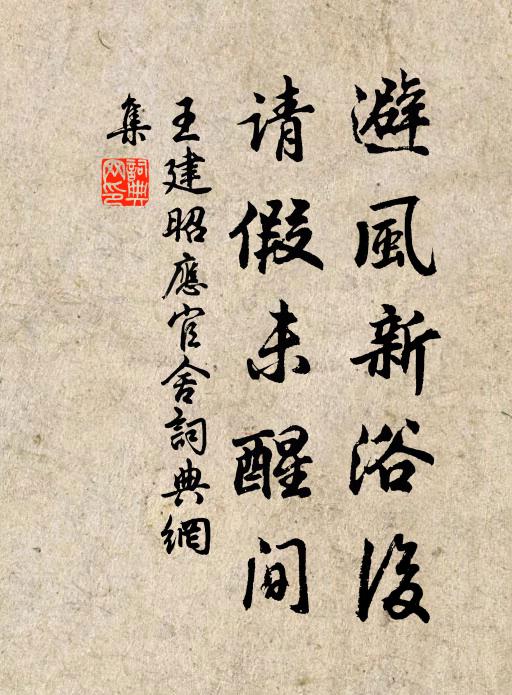 避風新浴後
请假未醒间
王建昭應官舍詞典網
集
詞典
网印